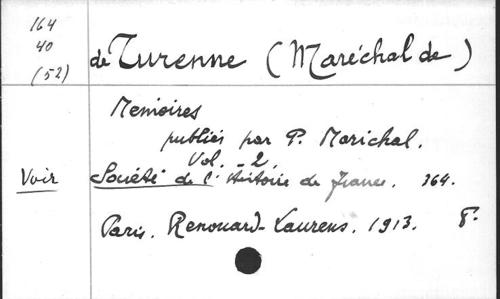 164
40
(52)
de Turenne (Maréchal de)
Memoires
publiés par P. Marichal.
Vol. 2.
Voir Société de l'Histoire de France. 364.
Paris. Renouard-Laurens. 1913. 8°.